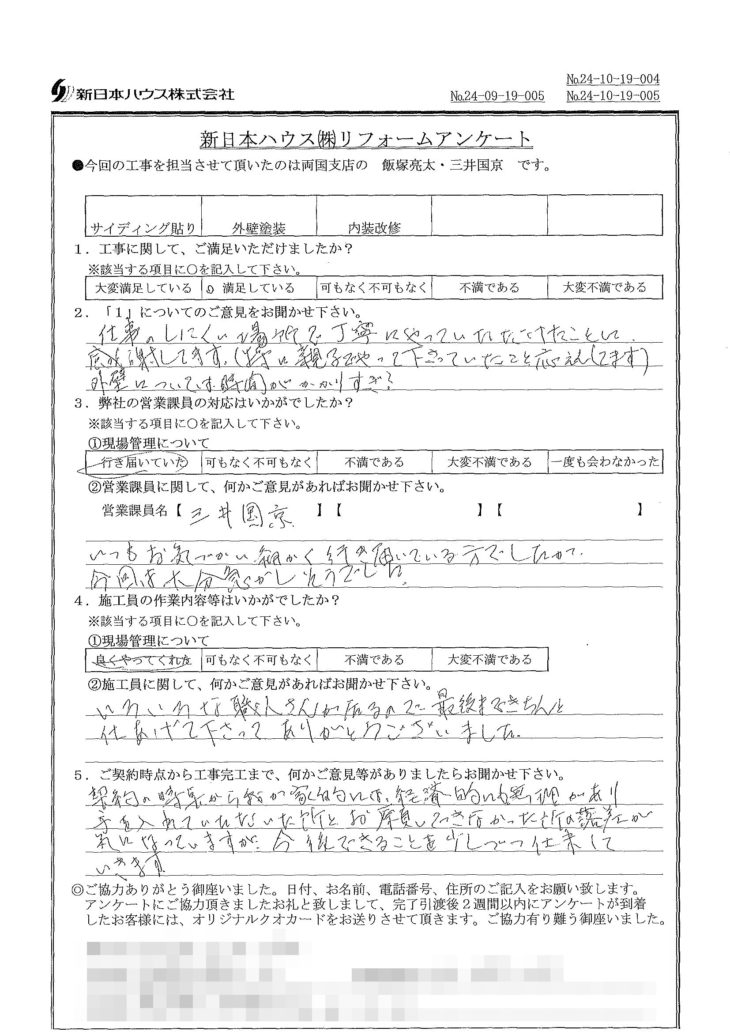 №24-10-19-004
新日本ハウス株式会社 №24-09-19-005 №24-10-19-005
新日本ハウス㈱リフォームアンケート
●今回の工事を担当させて頂いたのは両国支店の 飯塚亮太・三井国京 です。
サイディング貼り 外壁塗装 内装改修
1．工事に関して、ご満足いただけましたか？
※該当する項目に○を記入して下さい。
大変満足している 満足している 可もなく不可もなく 不満である 大変不満である
2．「1」についてのご意見をお聞かせ下さい。
仕事のしにくい場所で丁寧にやっていただけたことに
感謝してます。(特に親子でやって下さっていたこと応えんしてます)
外壁については時間がかかりすぎ？
3．弊社の営業課員の対応はいかがでしたか？
※該当する項目に○を記入して下さい。
①現場管理について
行き届いていた 可もなく不可もなく 不満である 大変不満である 一度も会わなかった
②営業課員に関して、何かご意見があればお聞かせ下さい。
営業課員名【 三井国京 】【 】【 】
いつもお気づかい細かく行き届いている方でしたが、
今回は大分忙がしそうでした。
4．施工員の作業内容等はいかがでしたか？
※該当する項目に○を記入して下さい。
①現場管理について
良くやってくれた 可もなく不可もなく 不満である 大変不満である
②施工員に関して、何かご意見があればお聞かせ下さい。
いろいろな職人さんが居るので最後まできちんと
仕あげて下さってありがとうございました。
5．ご契約時点から工事完工まで、何かご意見等がありましたらお聞かせ下さい。
契約の時点から 的には、経済的にも無理があり
手を入れていただいた所とお願いできなかった所の落差が
気になっていますが、今後できることを少しづつ仕来て
いきます
◎ご協力ありがとう御座いました。日付、お名前、電話番号、住所のご記入をお願い致します。
アンケートにご協力頂きましたお礼と致しまして、完了引渡後2週間以内にアンケートが到着
したお客様には、オリジナルクオカードをお送りさせて頂きます。ご協力有り難う御座いました。